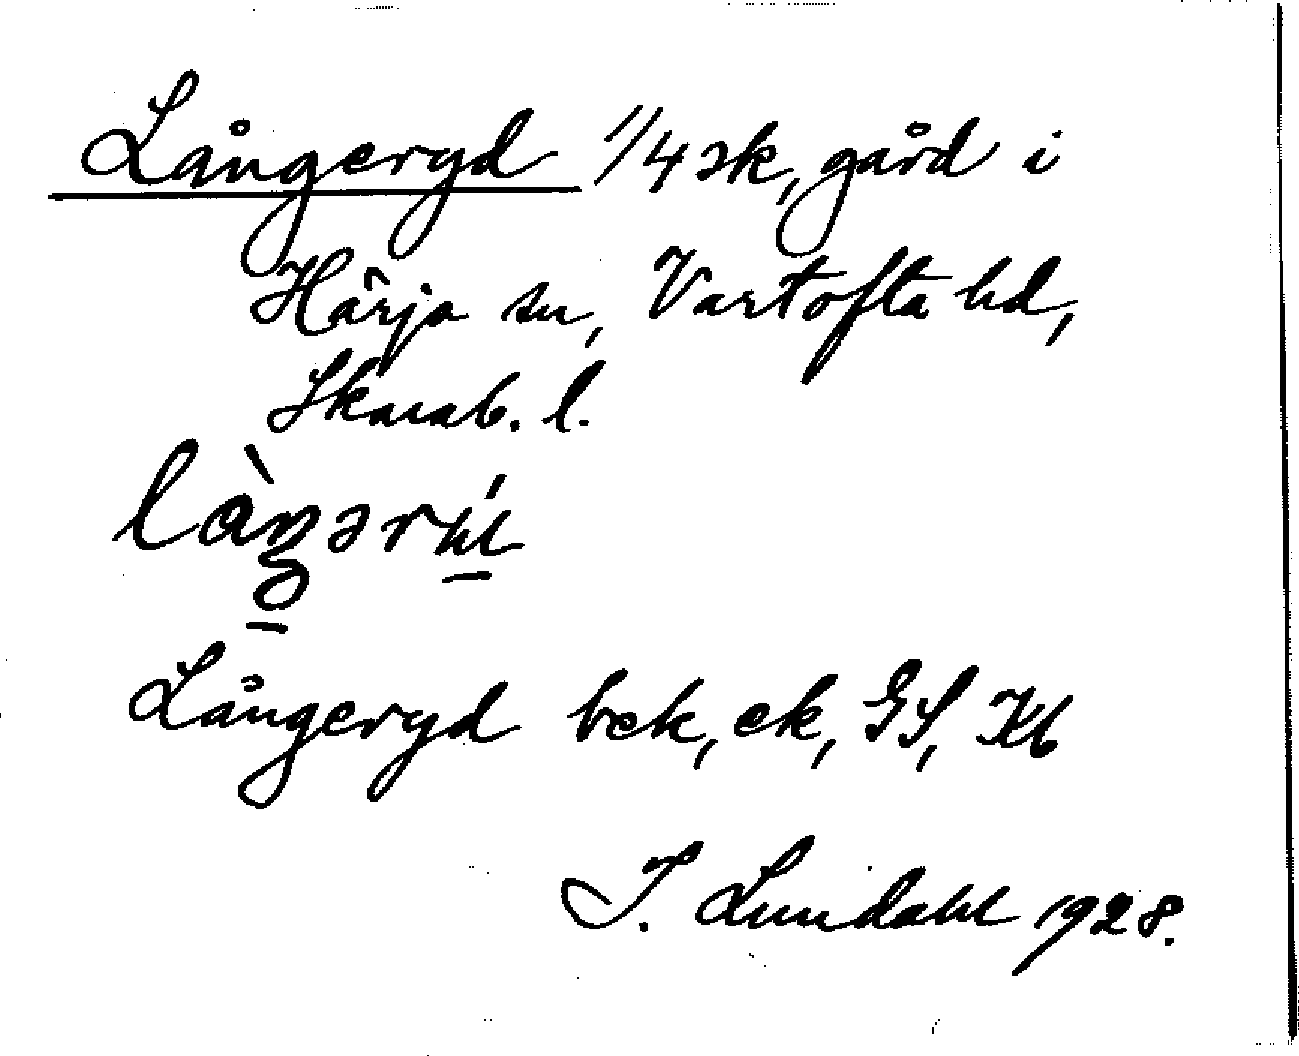 Långeryd 1/4 sk, gård i
Härja sn, Vartofta hd,
Skarab. l.
Långeryd bek, ek, GS, Kb
I. Lundahl 1928.